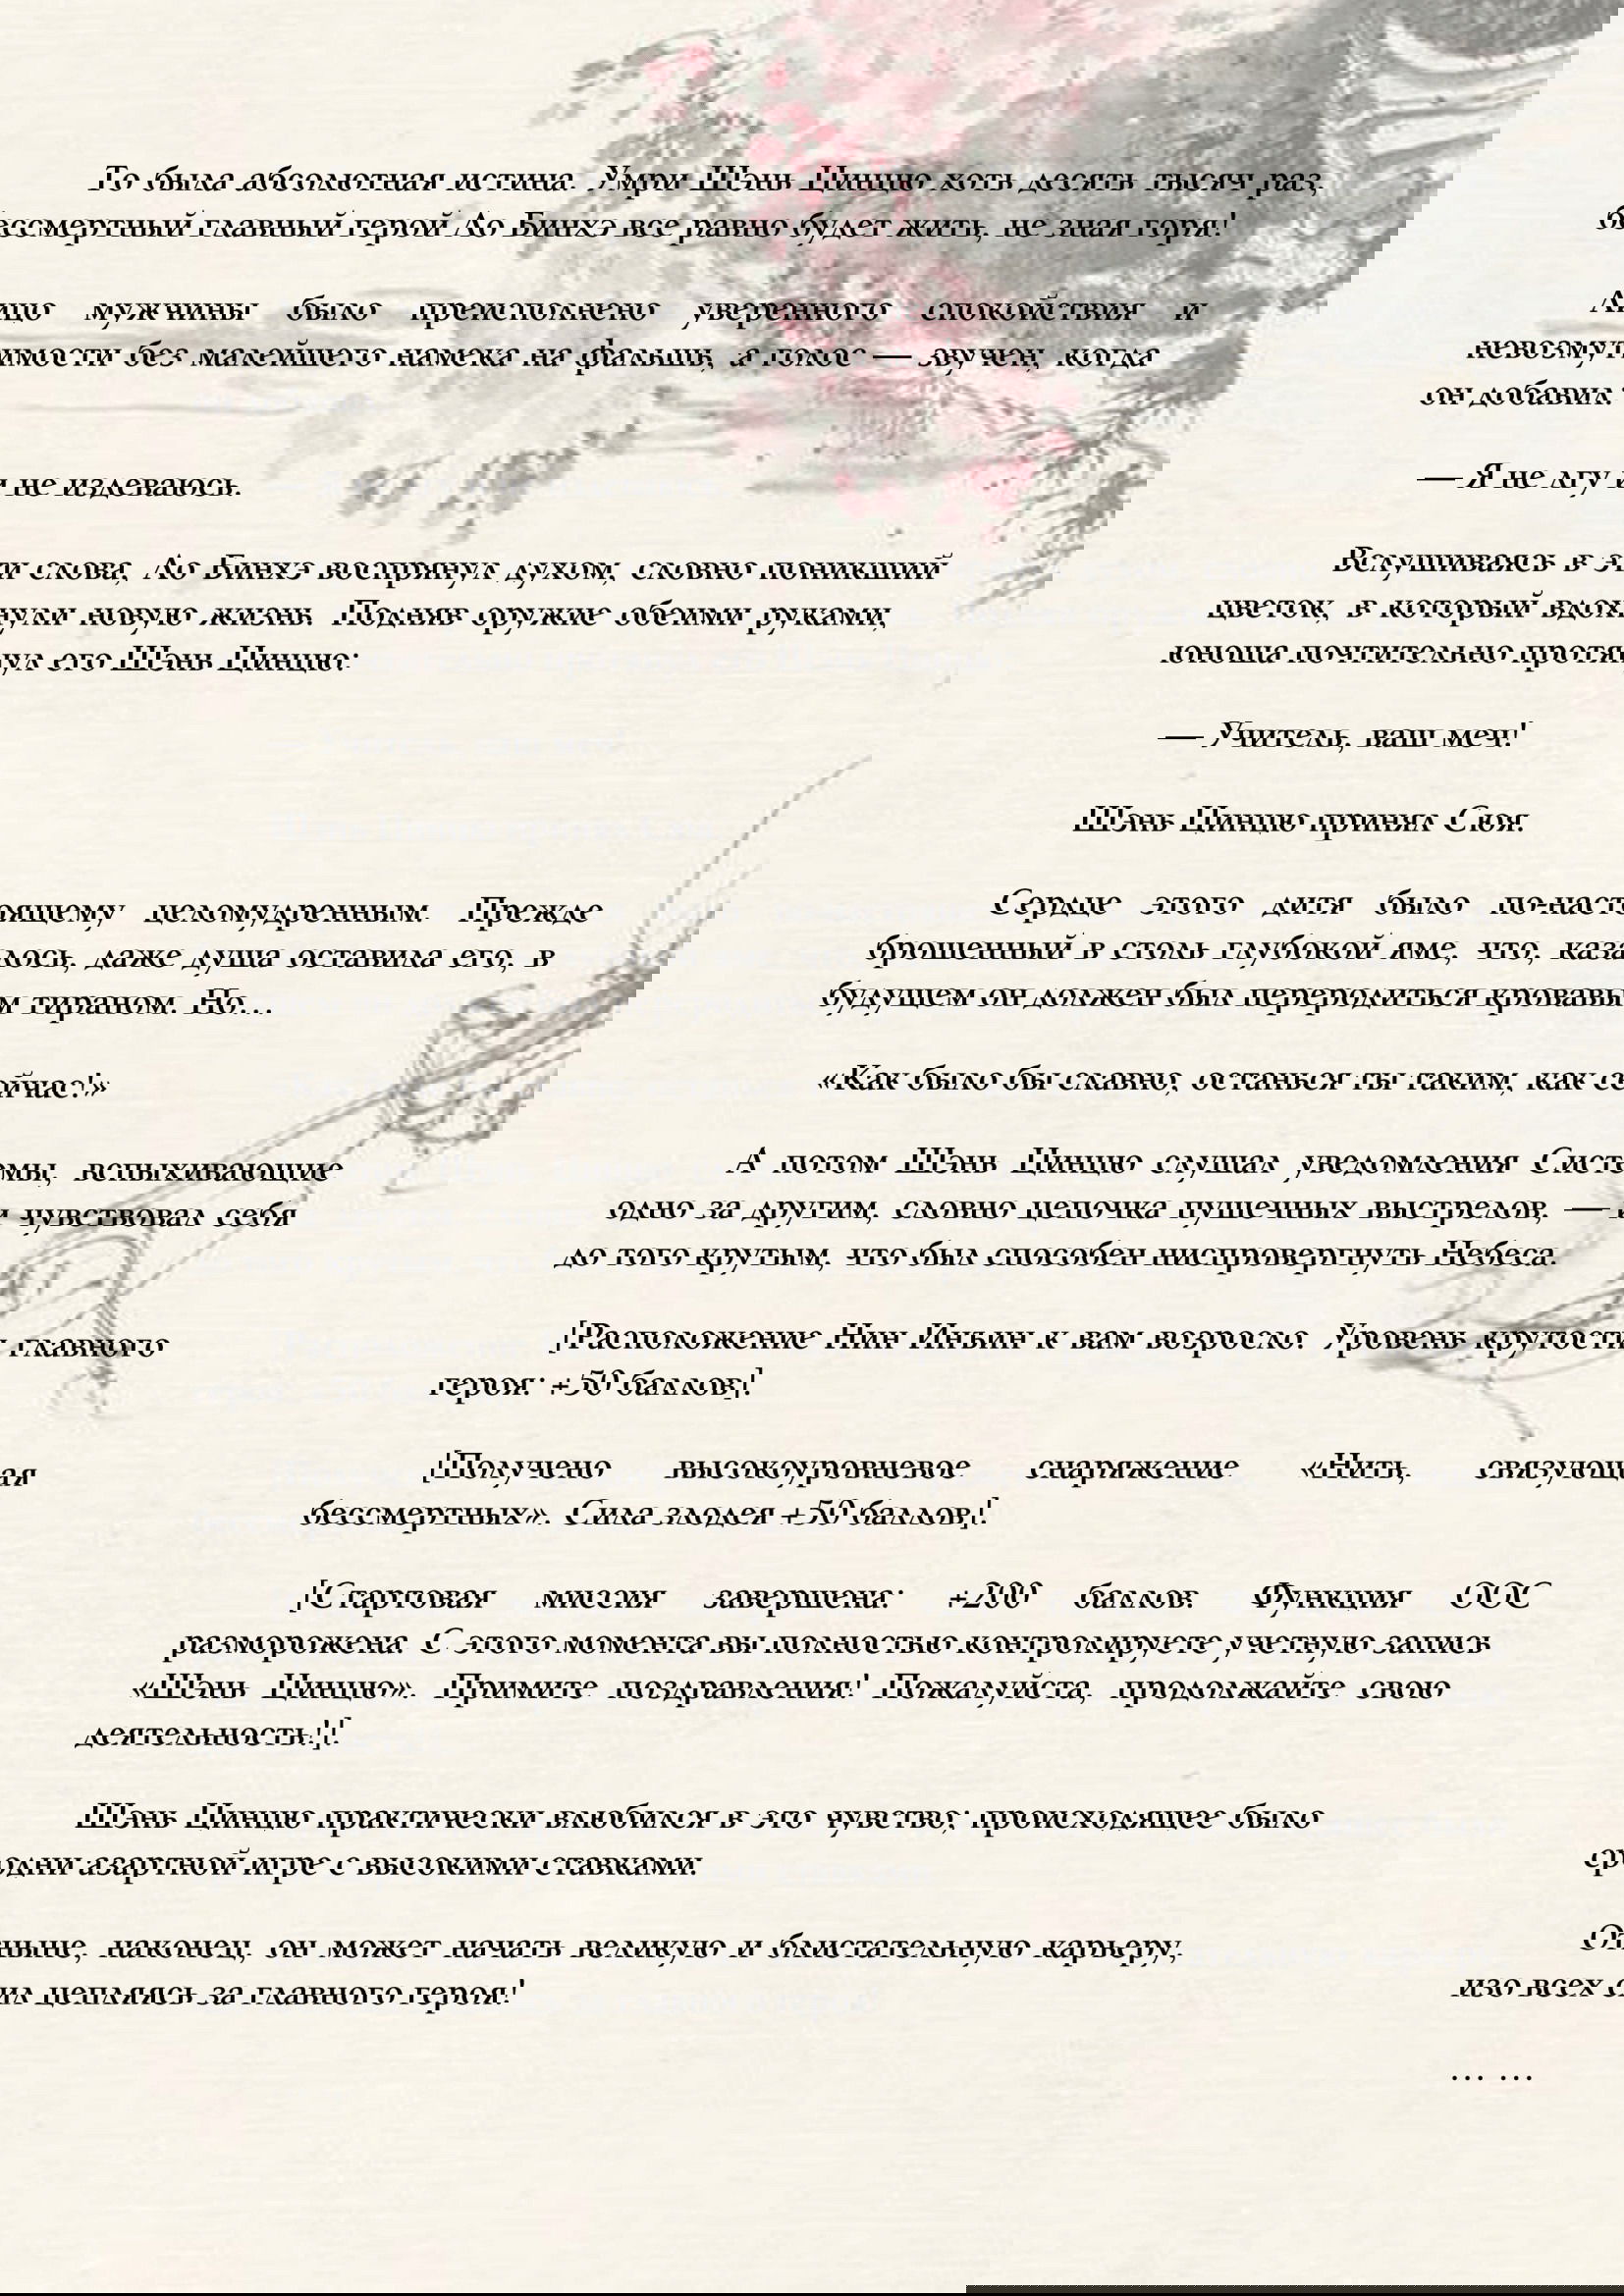 То была абсолютная истина. Умри Шэнь Цинцю хоть десять тысяч раз,
бессмертный главный герой Ло Бинхэ все равно будет жить, не зная горя!
Лицо мужчины было преисполнено уверенного спокойствия и
невозмутимости без малейшего намека на фальшь, а голос — звучен, когда
он добавил:
— Я не лгу и не издеваюсь.
Вслушиваясь в эти слова, Ло Бинхэ воспрянул духом, словно поникший
цветок, в который вдохнули новую жизнь. Подняв оружие обеими руками,
юноша почтительно протянул его Шэнь Цинцю:
— Учитель, ваш меч!
Шэнь Цинцю принял Сюя.
Сердце этого дитя было по-настоящему целомудренным. Прежде
брошенный в столь глубокой яме, что, казалось, даже душа оставила его, в
будущем он должен был переродиться кровавым тираном. Но…
«Как было бы славно, останься ты таким, как сейчас!»
А потом Шэнь Цинцю слушал уведомления Системы, вспыхивающие
одно за другим, словно цепочка пушечных выстрелов, — и чувствовал себя
до того крутым, что был способен ниспровергнуть Небеса.
[Расположение Нин Инъин к вам возросло. Уровень крутости главного
героя: +50 баллов.]
[Получено высокоуровневое снаряжение «Нить, связующая
бессмертных». Сила злодея +50 баллов.]
[Стартовая миссия завершена: +200 баллов. Функция ООС
разморожена. С этого момента вы полностью контролируете учетную запись
«Шэнь Цинцю». Примите поздравления! Пожалуйста, продолжайте свою
деятельность!]
Шэнь Цинцю практически влюбился в это чувство: происходящее было
сродни азартной игре с высокими ставками.
Отныне, наконец, он может начать великую и блистательную карьеру,
изо всех сил цепляясь за главного героя!
… …